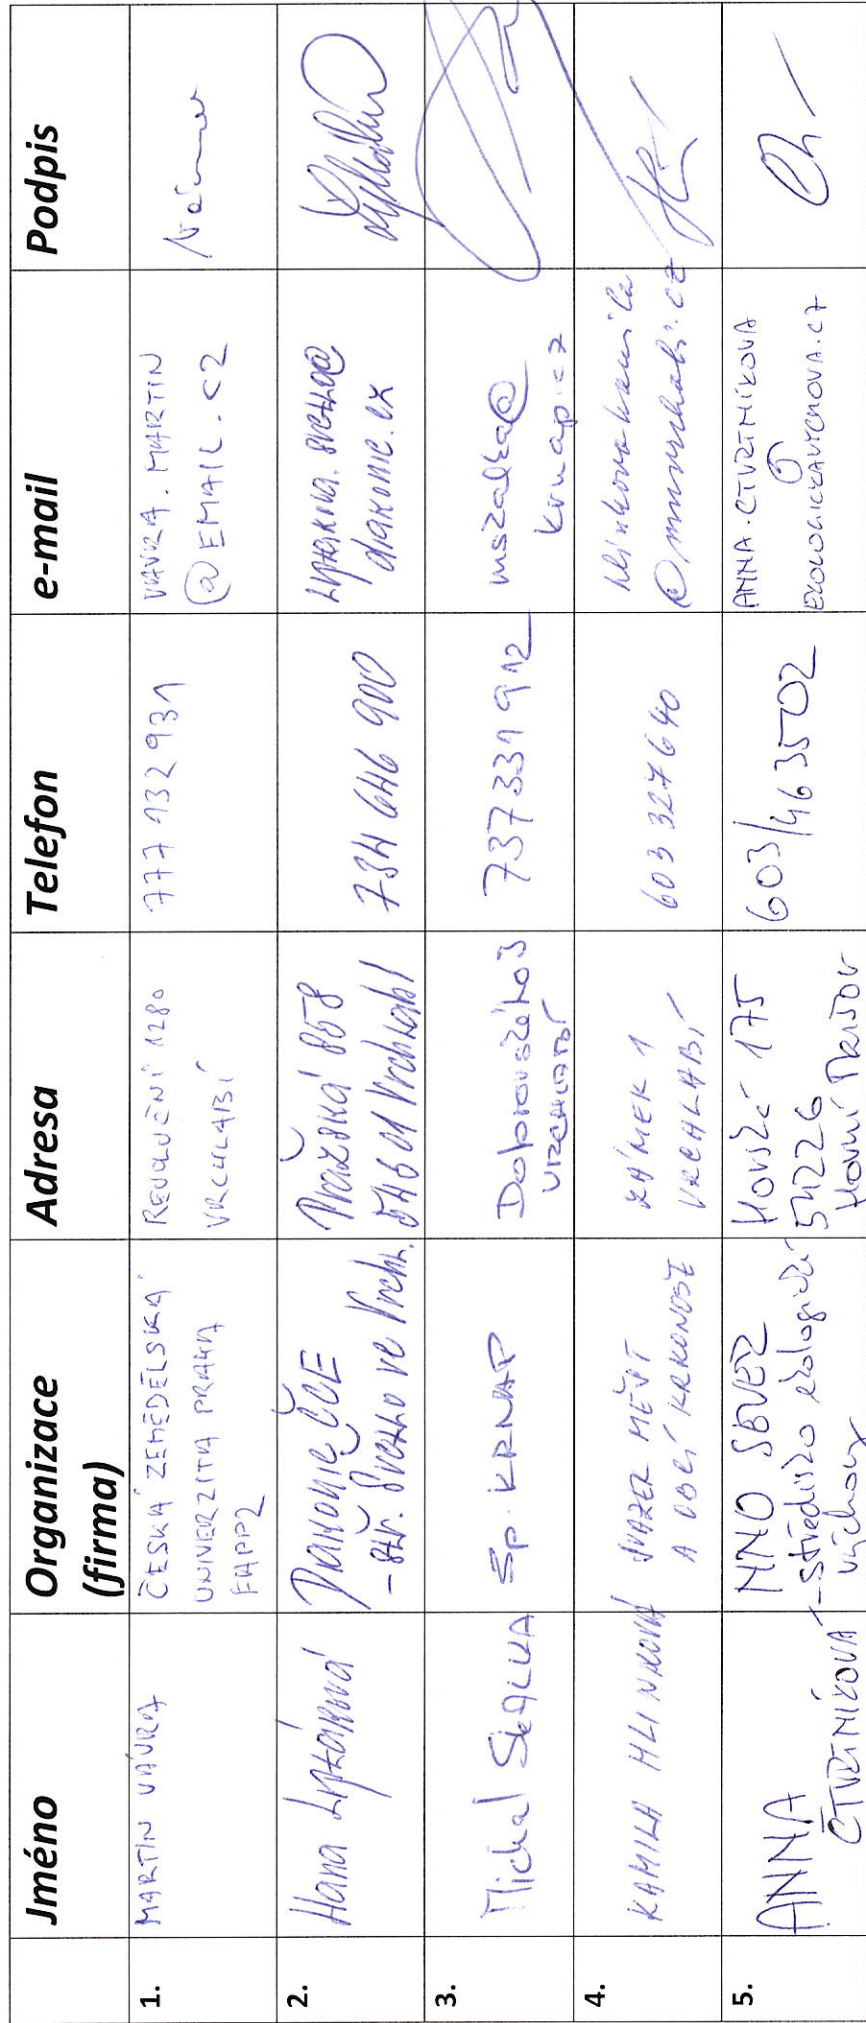 Jméno
Organizace
(firma)
Adresa
Telefon
e-mail
Podpis
1.
MARTIN VÁVRA
ČESKÁ ZEMĚDĚLSKÁ
UNIVERZITA PRAHA
FAPPZ
REVOLUČNÍ 1280
VRCHLABÍ
777 132 931
VAVRA.MARTIN
@EMAIL.CZ
2.
Hana
Diakonie ČCE
- stř. Světlo ve Vrchl.
Pražská 858
543 01 Vrchlabí
734 646 900
diakonie.cz
3.
Michal Skalka
Sp. KRNAP
Dobrovského 3
VRCHLABÍ
737331912
mskalka@
krnap.cz
4.
KAMILA HLINKOVÁ
SVAZEK MĚST
A OBCÍ KRKONOŠE
ZÁMEK 1
VRCHLABÍ
603 327 640
hlinkovakamila
@muvrchlabi.cz
5.
ANNA
ČTVRTNÍKOVÁ
NNO SEVER
- středisko ekologické
výchovy
Horská 175
54226
Horní Maršov
603/463502
ANNA.CTVRTNIKOVA
@
EKOLOGICKAVYCHOVA.CZ